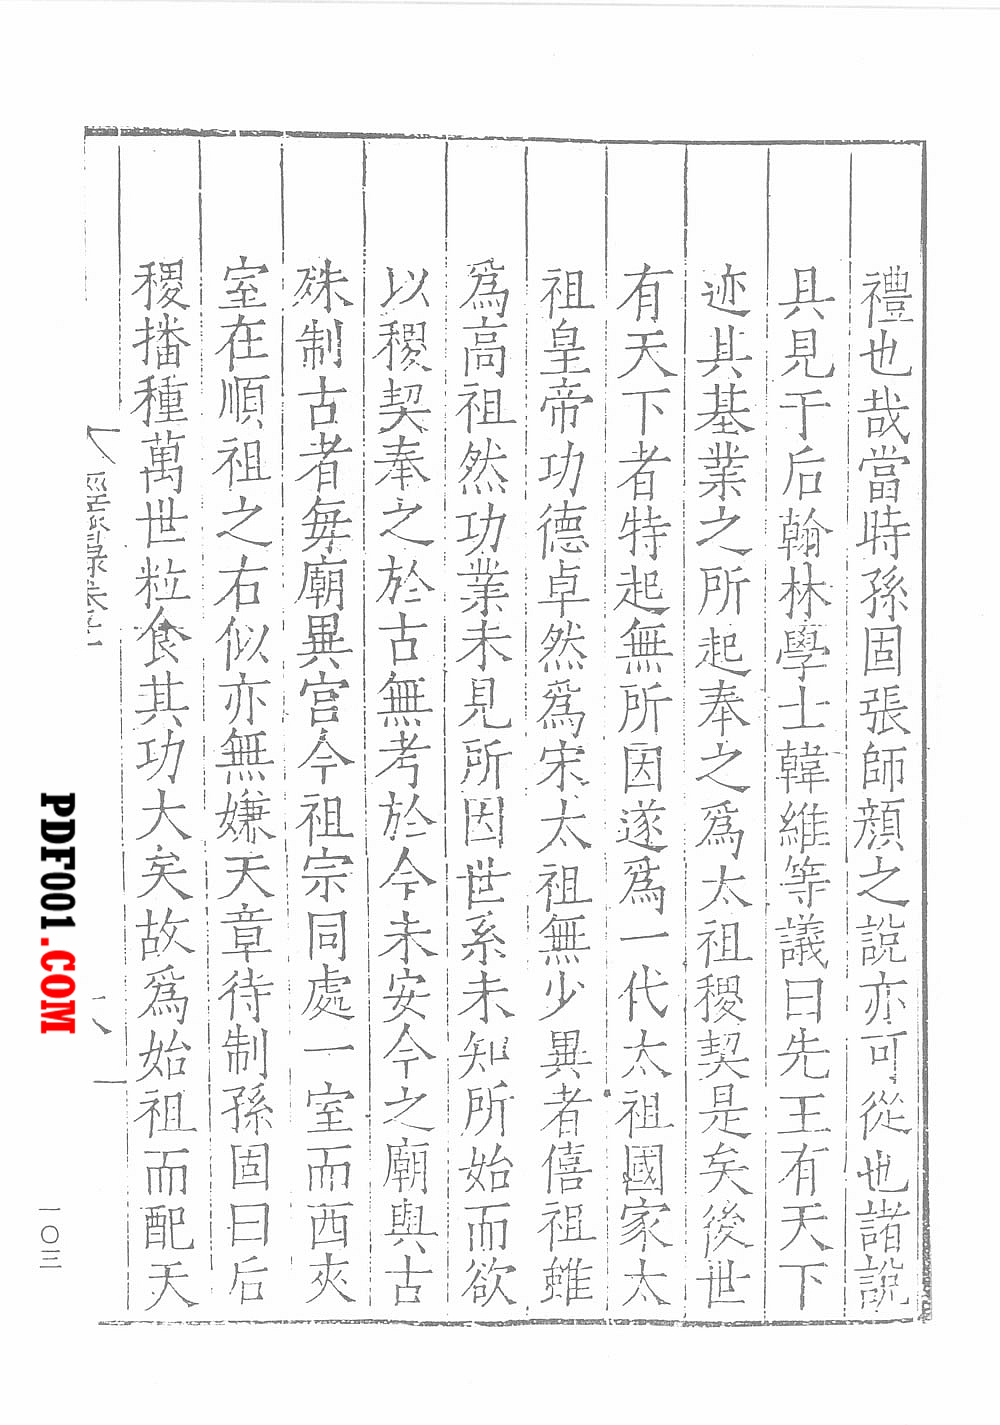 禮也哉當時孫固張師顏之說亦可從也諸說
具見于后翰林學士韓維等議曰先王有天下
迹其基業之所起奉之爲太祖稷契是矣後世
有天下者特起無所因遂爲一代太祖國家太
祖皇帝功德卓然爲宋太祖無少異者僖祖雖
爲高祖然功業未見所因世系未知所始而欲
以稷契奉之於古無考於今未安今之廟與古
殊制古者每廟異宮今祖宗同處一室而西夾
室在順祖之右似亦無嫌天章待制孫固曰后
稷播種萬世粒食其功大矣故爲始祖而配天
一〇三
PDF001.COM